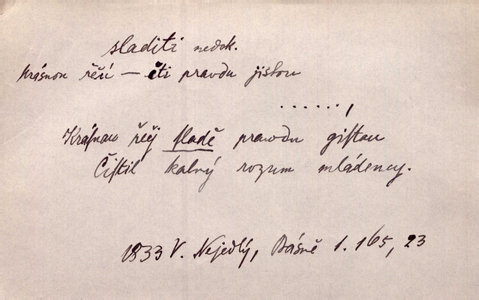 sladiti nedok.
Krásnou řečí — čti pravdu jistou
......,
Krásnau řečj sladě prawdu gistau
Čistil kalný rozum mládency.
1833 V. Nejedlý, Básně 1. 165, 23